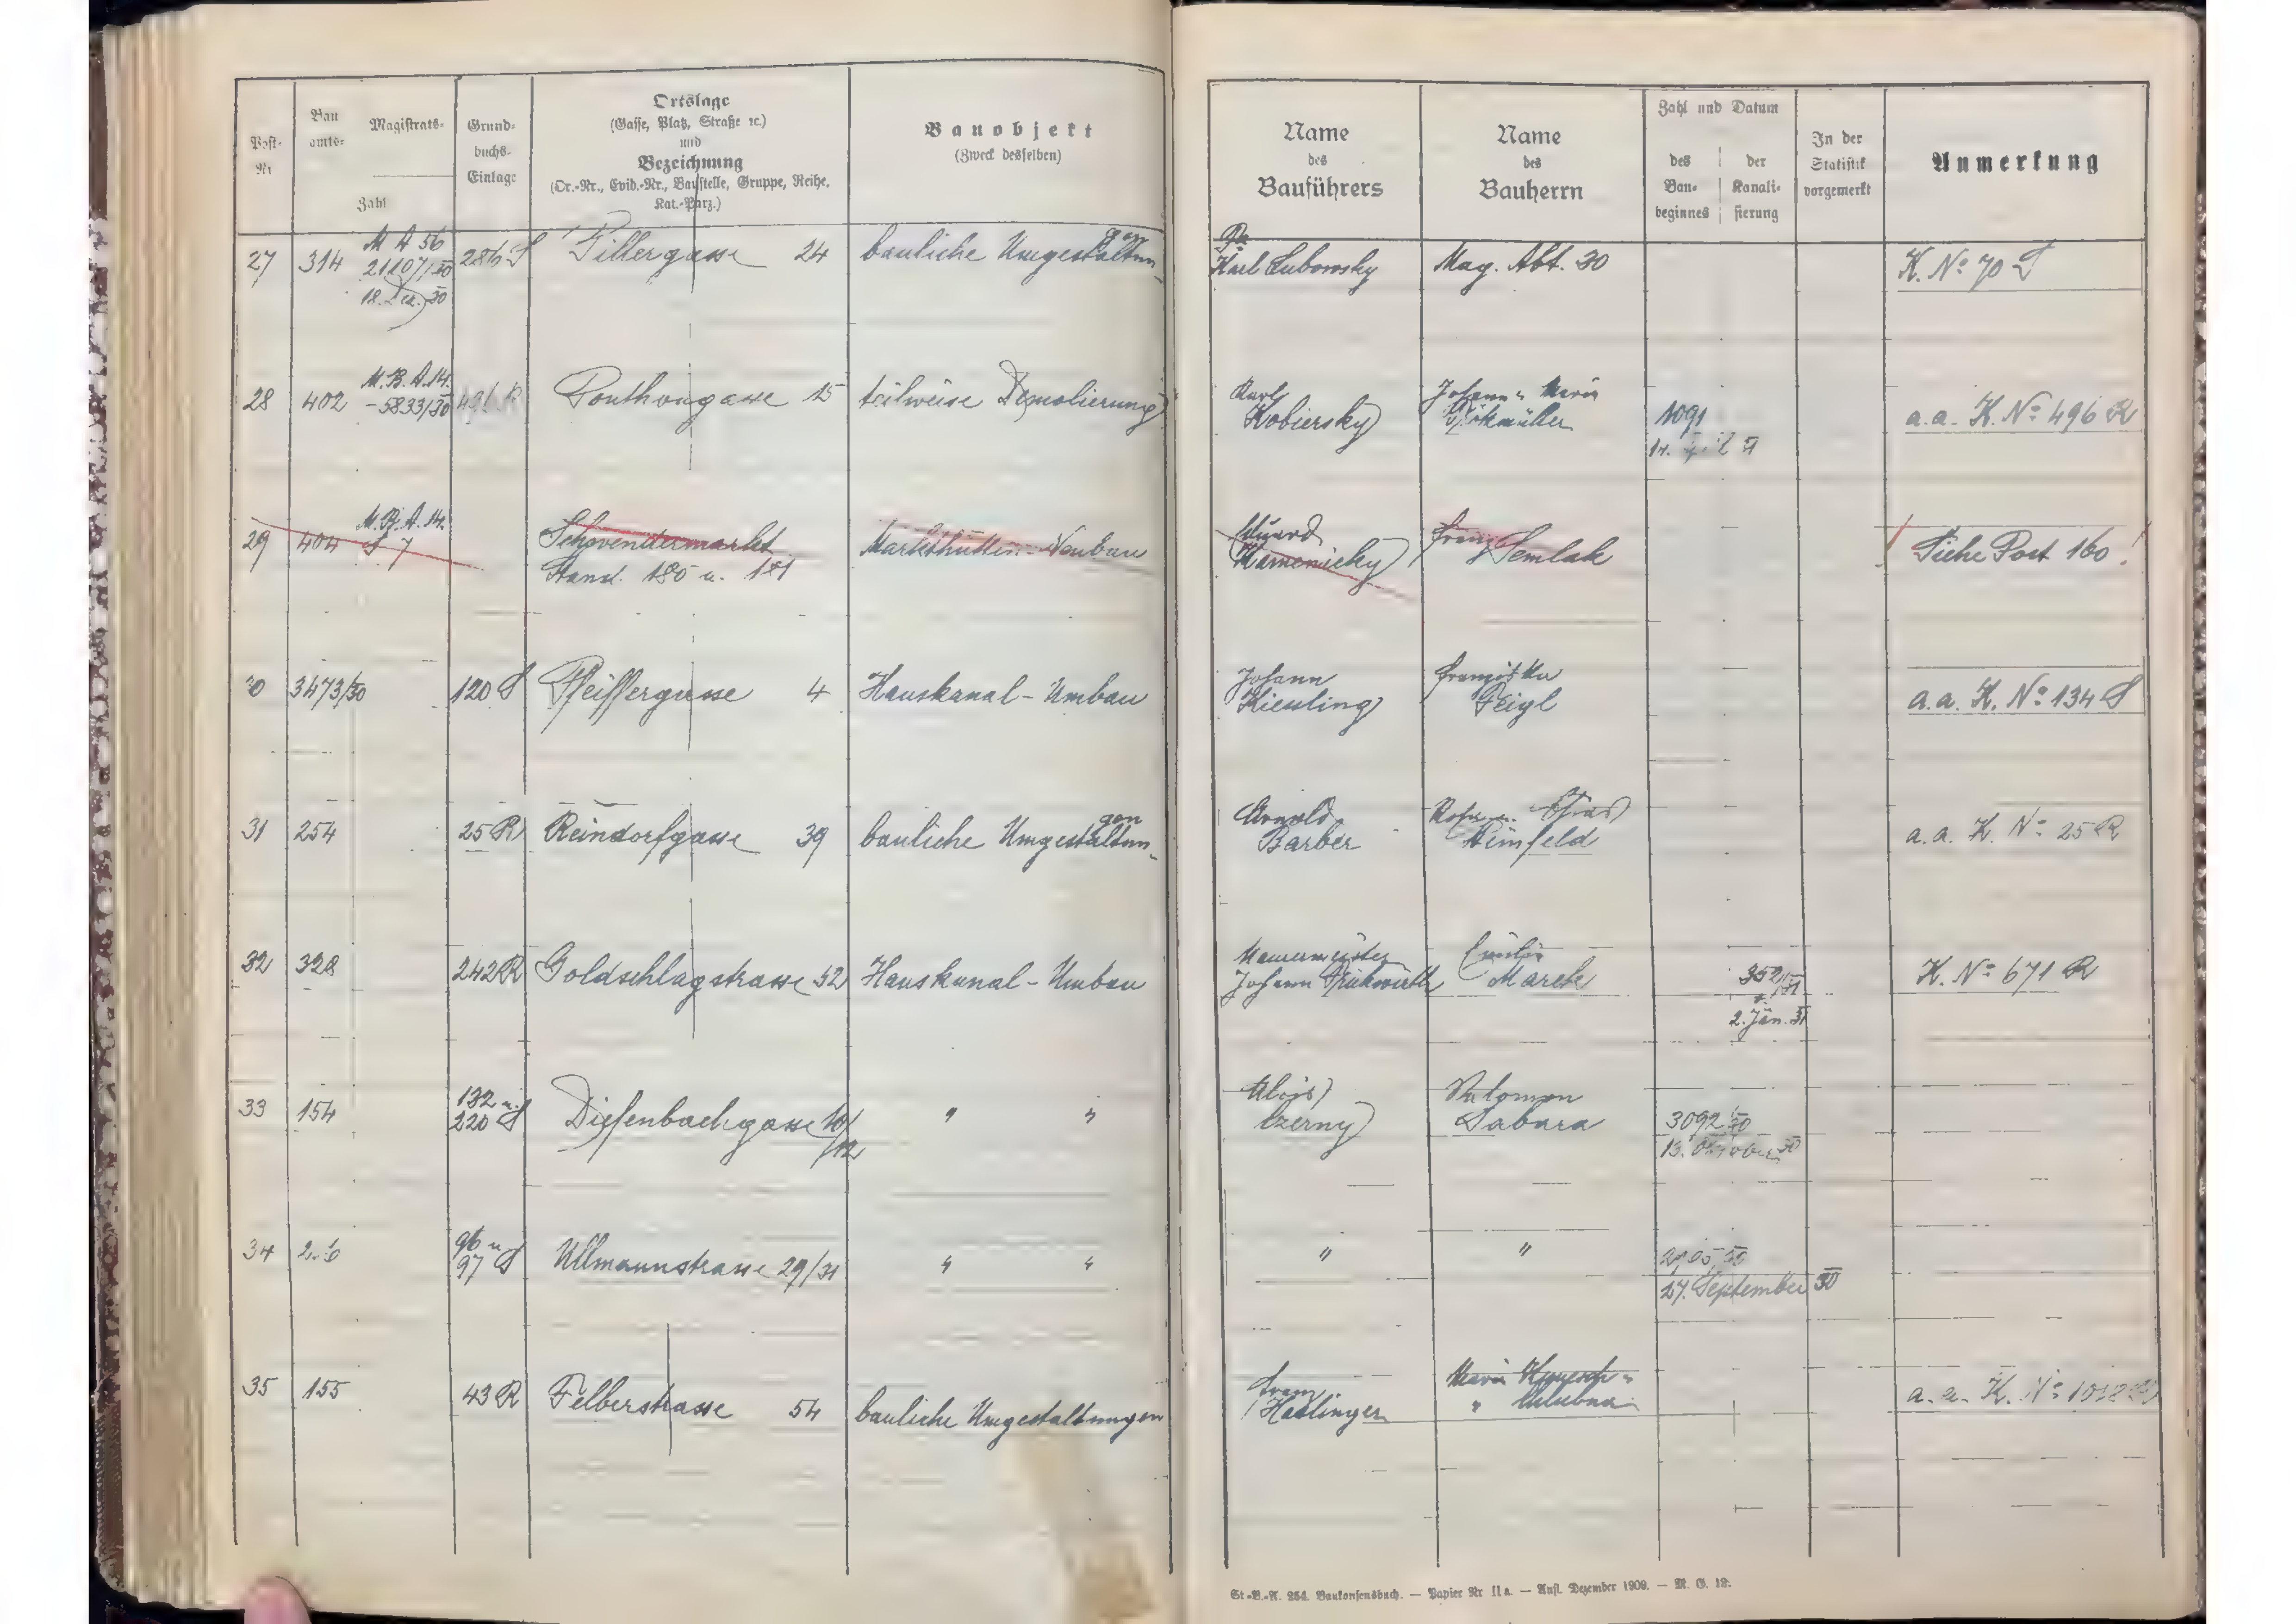 Post-Nr
Bau amts- Magistrats-
Zahl
Grund-
buchs-
Einlage
Ortslage
(Gasse, Platz, Straße ꝛc.)
und
Bezeichnung
(Or.-Nr., Evid.-Nr., Baustelle, Gruppe, Reihe,
Kat.-Parz.)
Bauobjekt
(Zweck desselben)
Name
des
Bauführers
Name
des
Bauherrn
Zahl und Datum
des
Bau-
beginnes
der
Kanali-
sierung
In der
Statistik
vorgemerkt
Anmerkung
27 314 M A 56
21107/30
18. Dez. 30
286 S Pillergasse 24 bauliche Umgestaltun-
gen
Karl Lubowsky Mag. Abt. 30 K. No 70 S
28 402 M.B.A.14.
-5833/30
Ponthongasse 15 teilweise Demolierung
Karl
Kobiersky
Johann u. Maria
1091
a.a. K. No 496 R
29 404 M.B.A.14.
S 7
Schwendermarkt
Stand. 180 u. 181
Markthütten-Neubau
Eduard
Kamenicky
Franz
Semlak
Siehe Post 160!
3473/30 120 S Pfeiffergasse 4 Hauskanal-Umbau
Johann
Kiesling
Franziska
Feigl
a.a. K. No 134 S
31 254 25 R Reindorfgasse 39 bauliche Umgestaltun-
gen
Arnold
Barber
Reinfeld
a.a. K. No 25 R
32 328 242 R Goldschlagstrasse 52 Hauskanal-Umbau
Maurermeister
Johann
Emilie
Marek
352/31
2. Jän. 31
K. No 671 R
33 154 132 u.
220 S
Diefenbachgasse 10/
/12
" "
Alois
Czerny
Salomon
Sabara
3092/30
13. Oktober 30
34 96 u.
97 S
Ullmannstrasse 29/31 " "
" "
27. September 30
35 155 43 R Felberstrasse 54 bauliche Umgestaltungen
Franz
Haslinger
Maria
a.a. K. No
St.-B.-A. 254. Baukonsensbuch. — Papier Nr. II a. — Aufl. Dezember 1909. — M. G. 12.